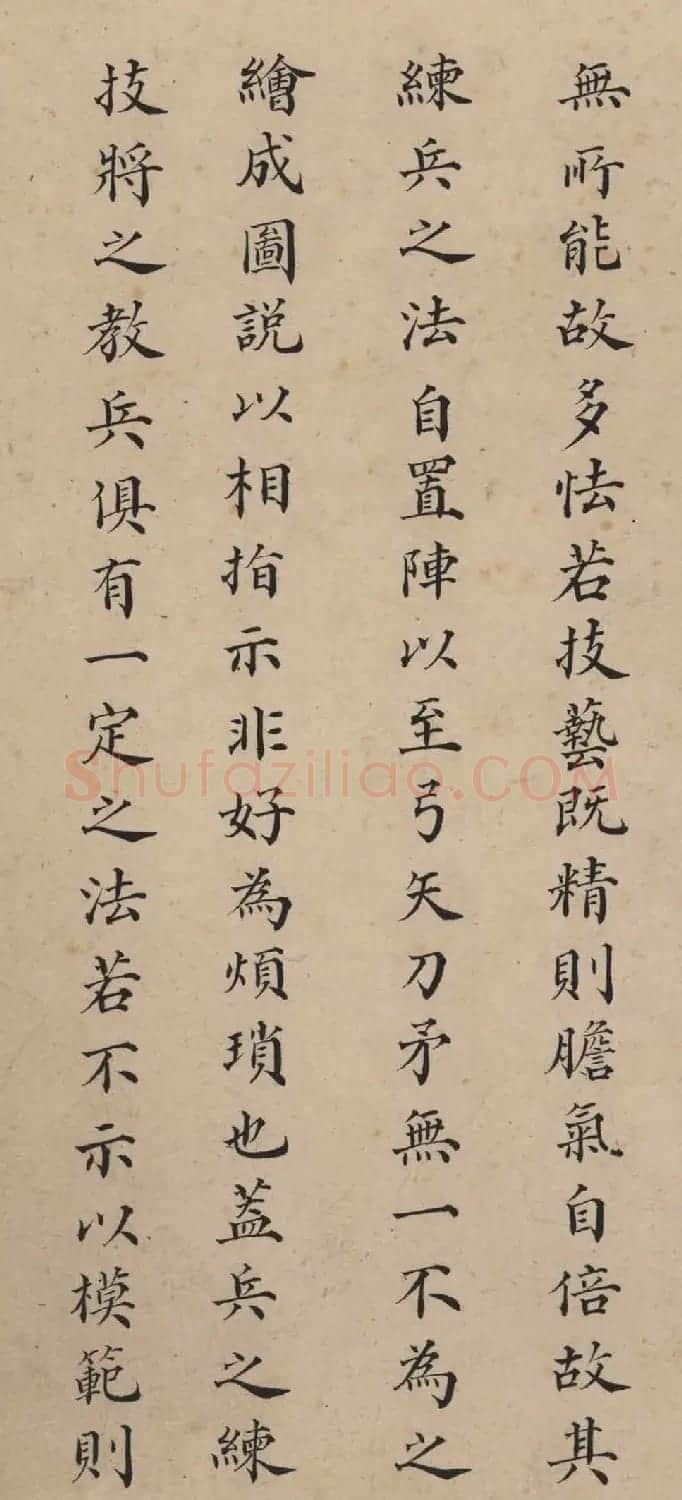 無所能故多怯若技藝既精則膽氣自倍故其
練兵之法自置陣以至弓矢刀矛無一不為之
繪成圖説以相指示非好為煩瑣也葢兵之練
技將之教兵俱有一定之法若不示以模範則
Shufaziliao.COM